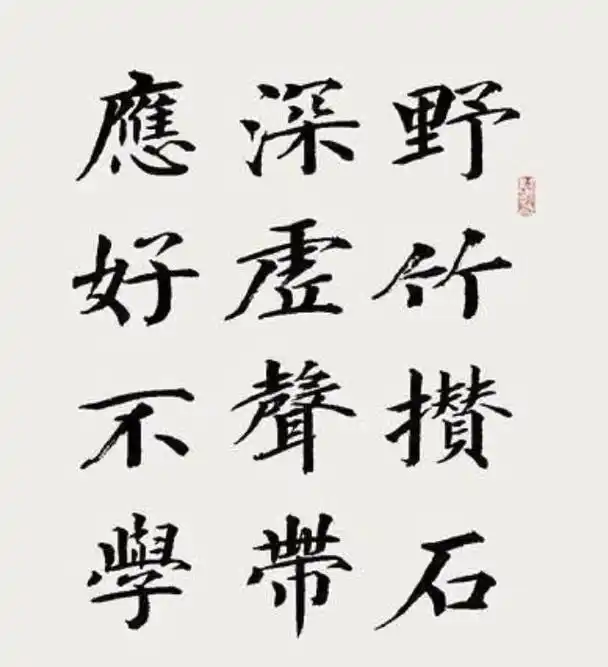 野竹攢石
深虛聲帶
應好不學